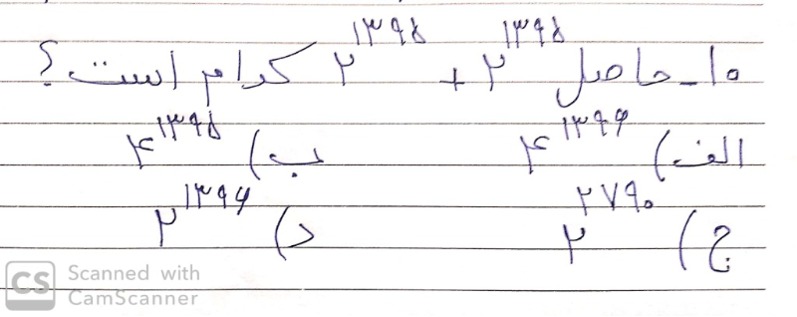 ۱۰ـ حاصل ۲^۱۳۹۵ + ۲^۱۳۹۵ کدام است؟
الف) ۴^۱۳۹۶ ب) ۴^۱۳۹۵
ج) ۲^۲۷۹۰ د) ۲^۱۳۹۶
CS Scanned with
CamScanner